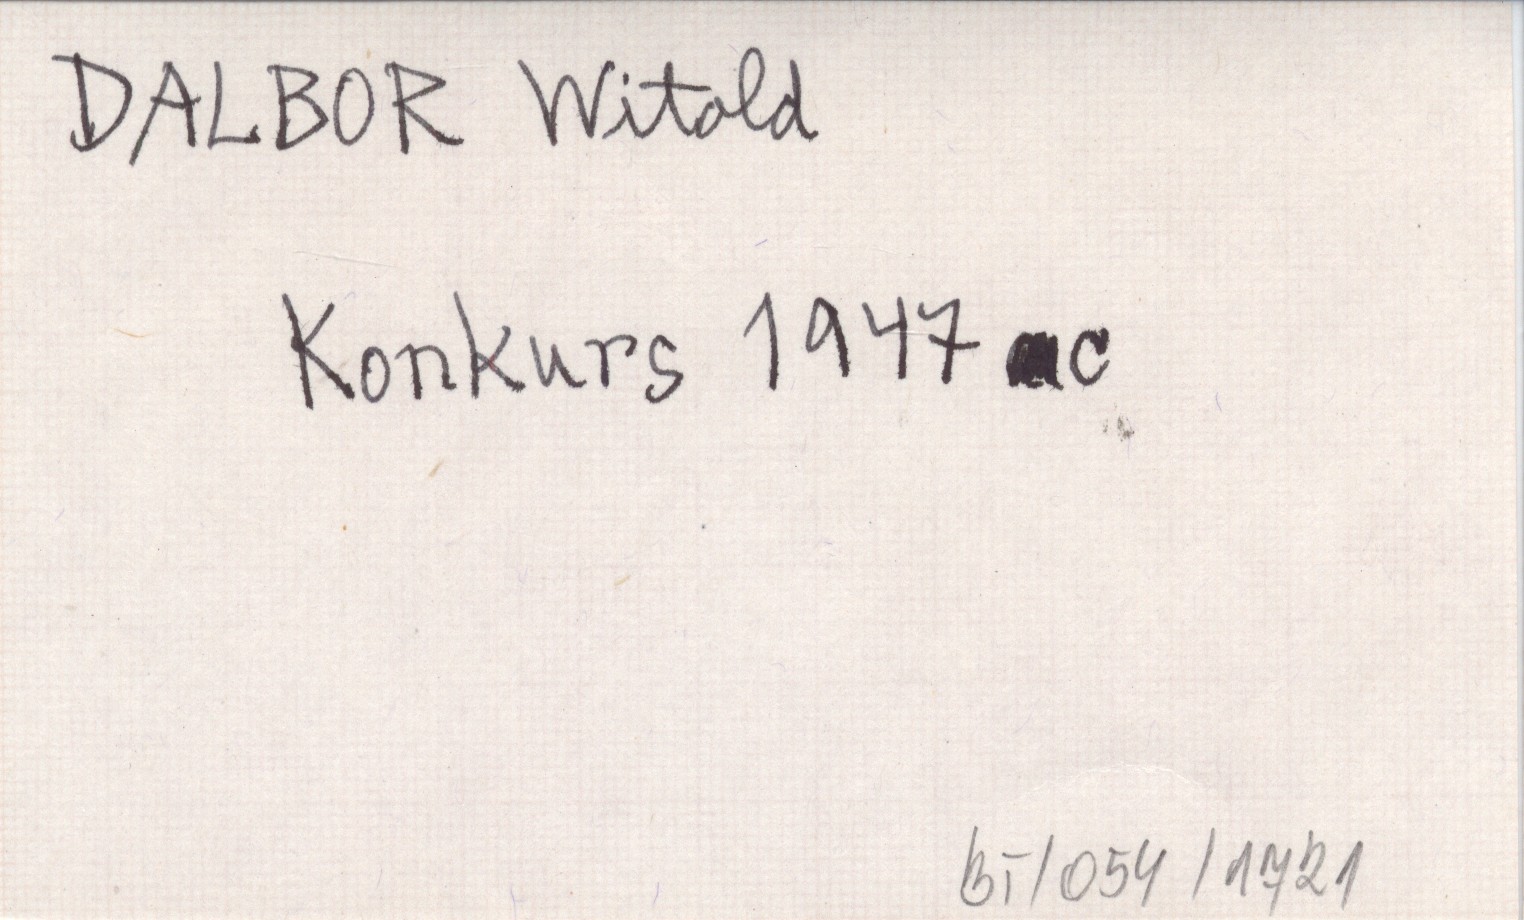 DALBOR Witold
Konkurs 1947 c
bT/054/1721